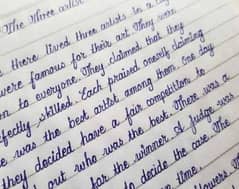 The Three artist
there lived three artists in a
were famous for their art. They were
to everyone. They claimed that they
perfectly skilled. Each praised oneself claiming
was the best artist among them. One day
they decided have a fair competition to
out who was the best. There was a
for the winner. A judge was
to decide the case. The
time